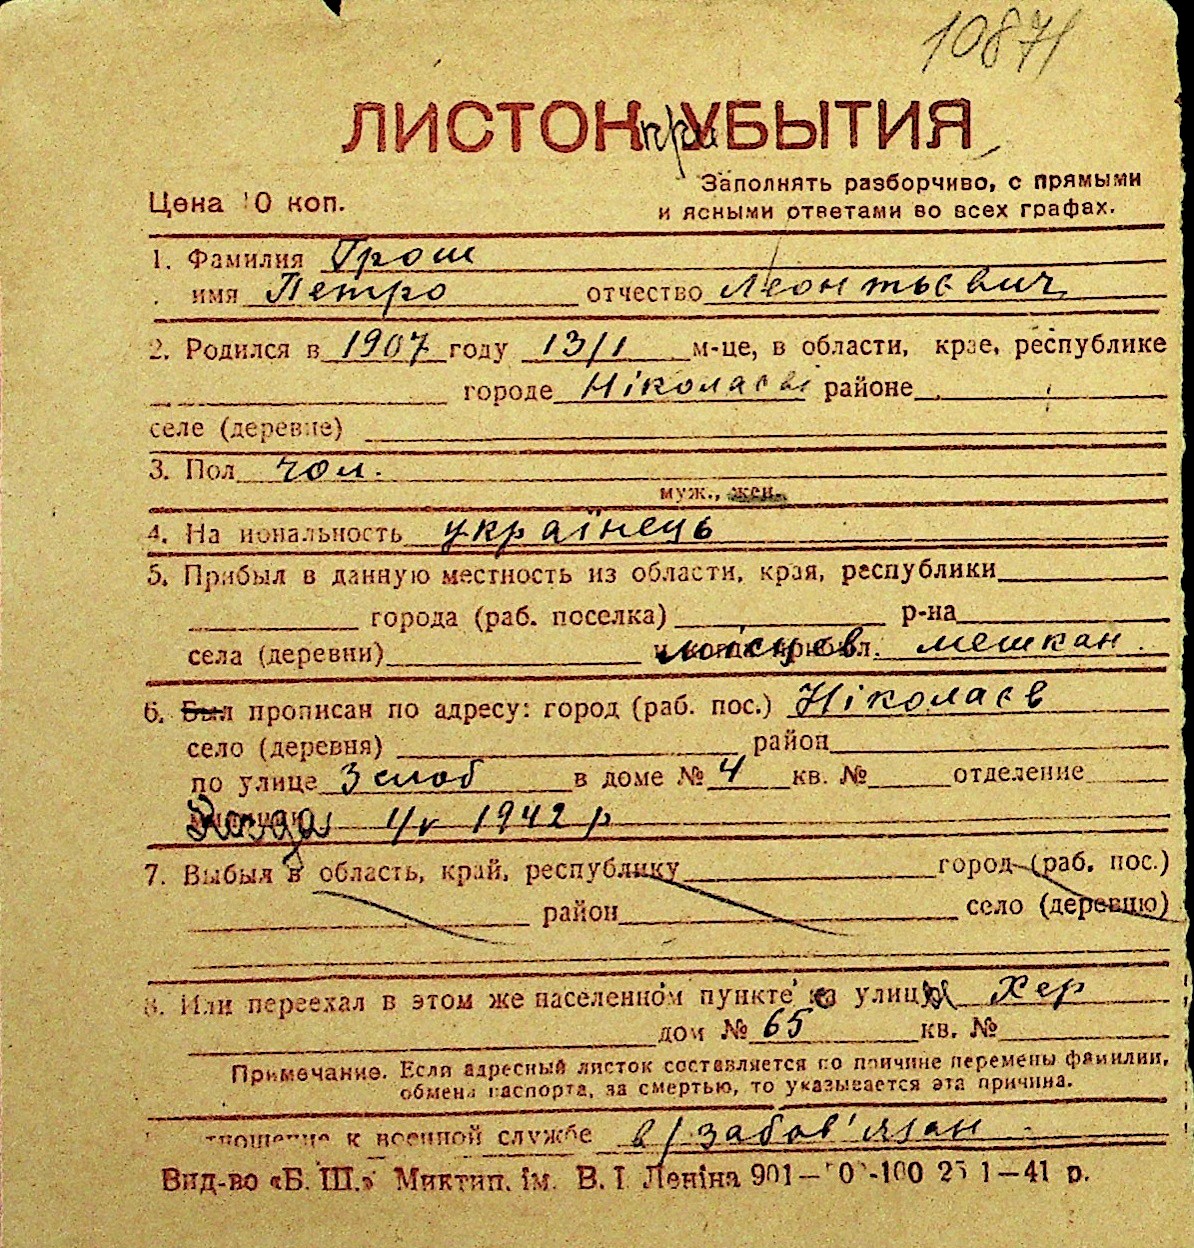 10871
ЛИСТОК при УБЫТИЯ
Заполнять разборчиво, с прямыми
Цена 10 коп.
и ясными ответами во всех графах.
1. Фамилия Грош
имя Петро отчество Леонтьєвич
2. Родился в 1907 году 13/1 м-це, в области, крае, республике
городе Ніколаєві районе
селе (деревне)
3. Пол чол.
муж., жен.
4. Национальность українець
5. Прибыл в данную местность из области, края, республики
города (раб. поселка) р-на
села (деревни) місцев. мешкан.
6. Был прописан по адресу: город (раб. пос.) Ніколаєв
село (деревня) район
по улице 3 слоб в доме № 4 кв. № отделение
Когда 1/V 1942 р
7. Выбыл в область, край, республику город (раб. пос.)
район село (деревню)
8. Или переехал в этом же населенном пункте с улицы Хер
дом № 65 кв. №
Примечание. Если адресный листок составляется по причине перемены фамилии,
обмена паспорта, за смертью, то указывается эта причина.
Отношение к военной службе в/забов'язан
Вид-во «Б. Ш.» Миктип. ім. В. І. Леніна 901— -100 25 1—41 р.